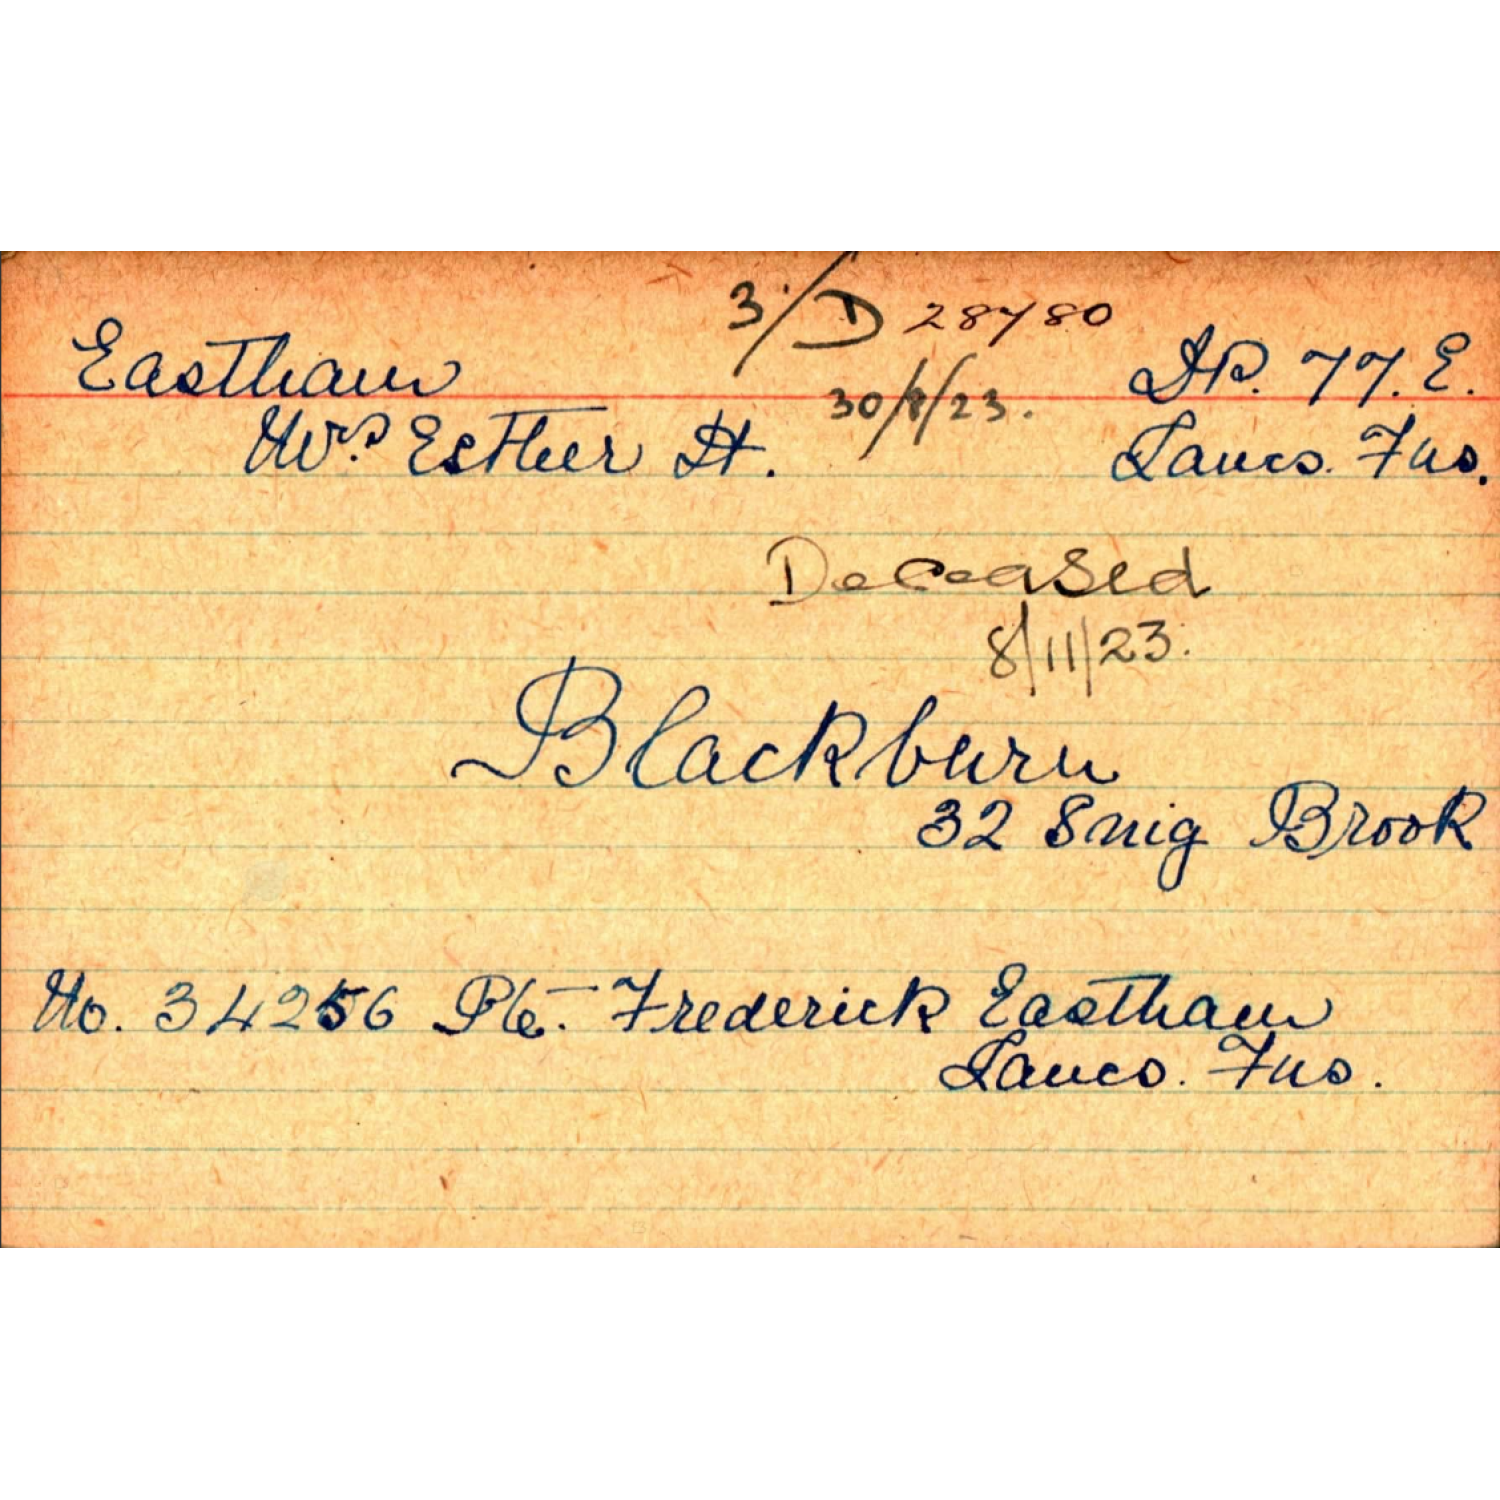 3/D 28780
Eastham DP. 77. E.
30/8/23.
Mrs Esther H. Lancs. Fus.
Deceased
8/11/23.
Blackburn
32 Snig Brook
No. 34256 Pte. Frederick Eastham
Lancs. Fus.